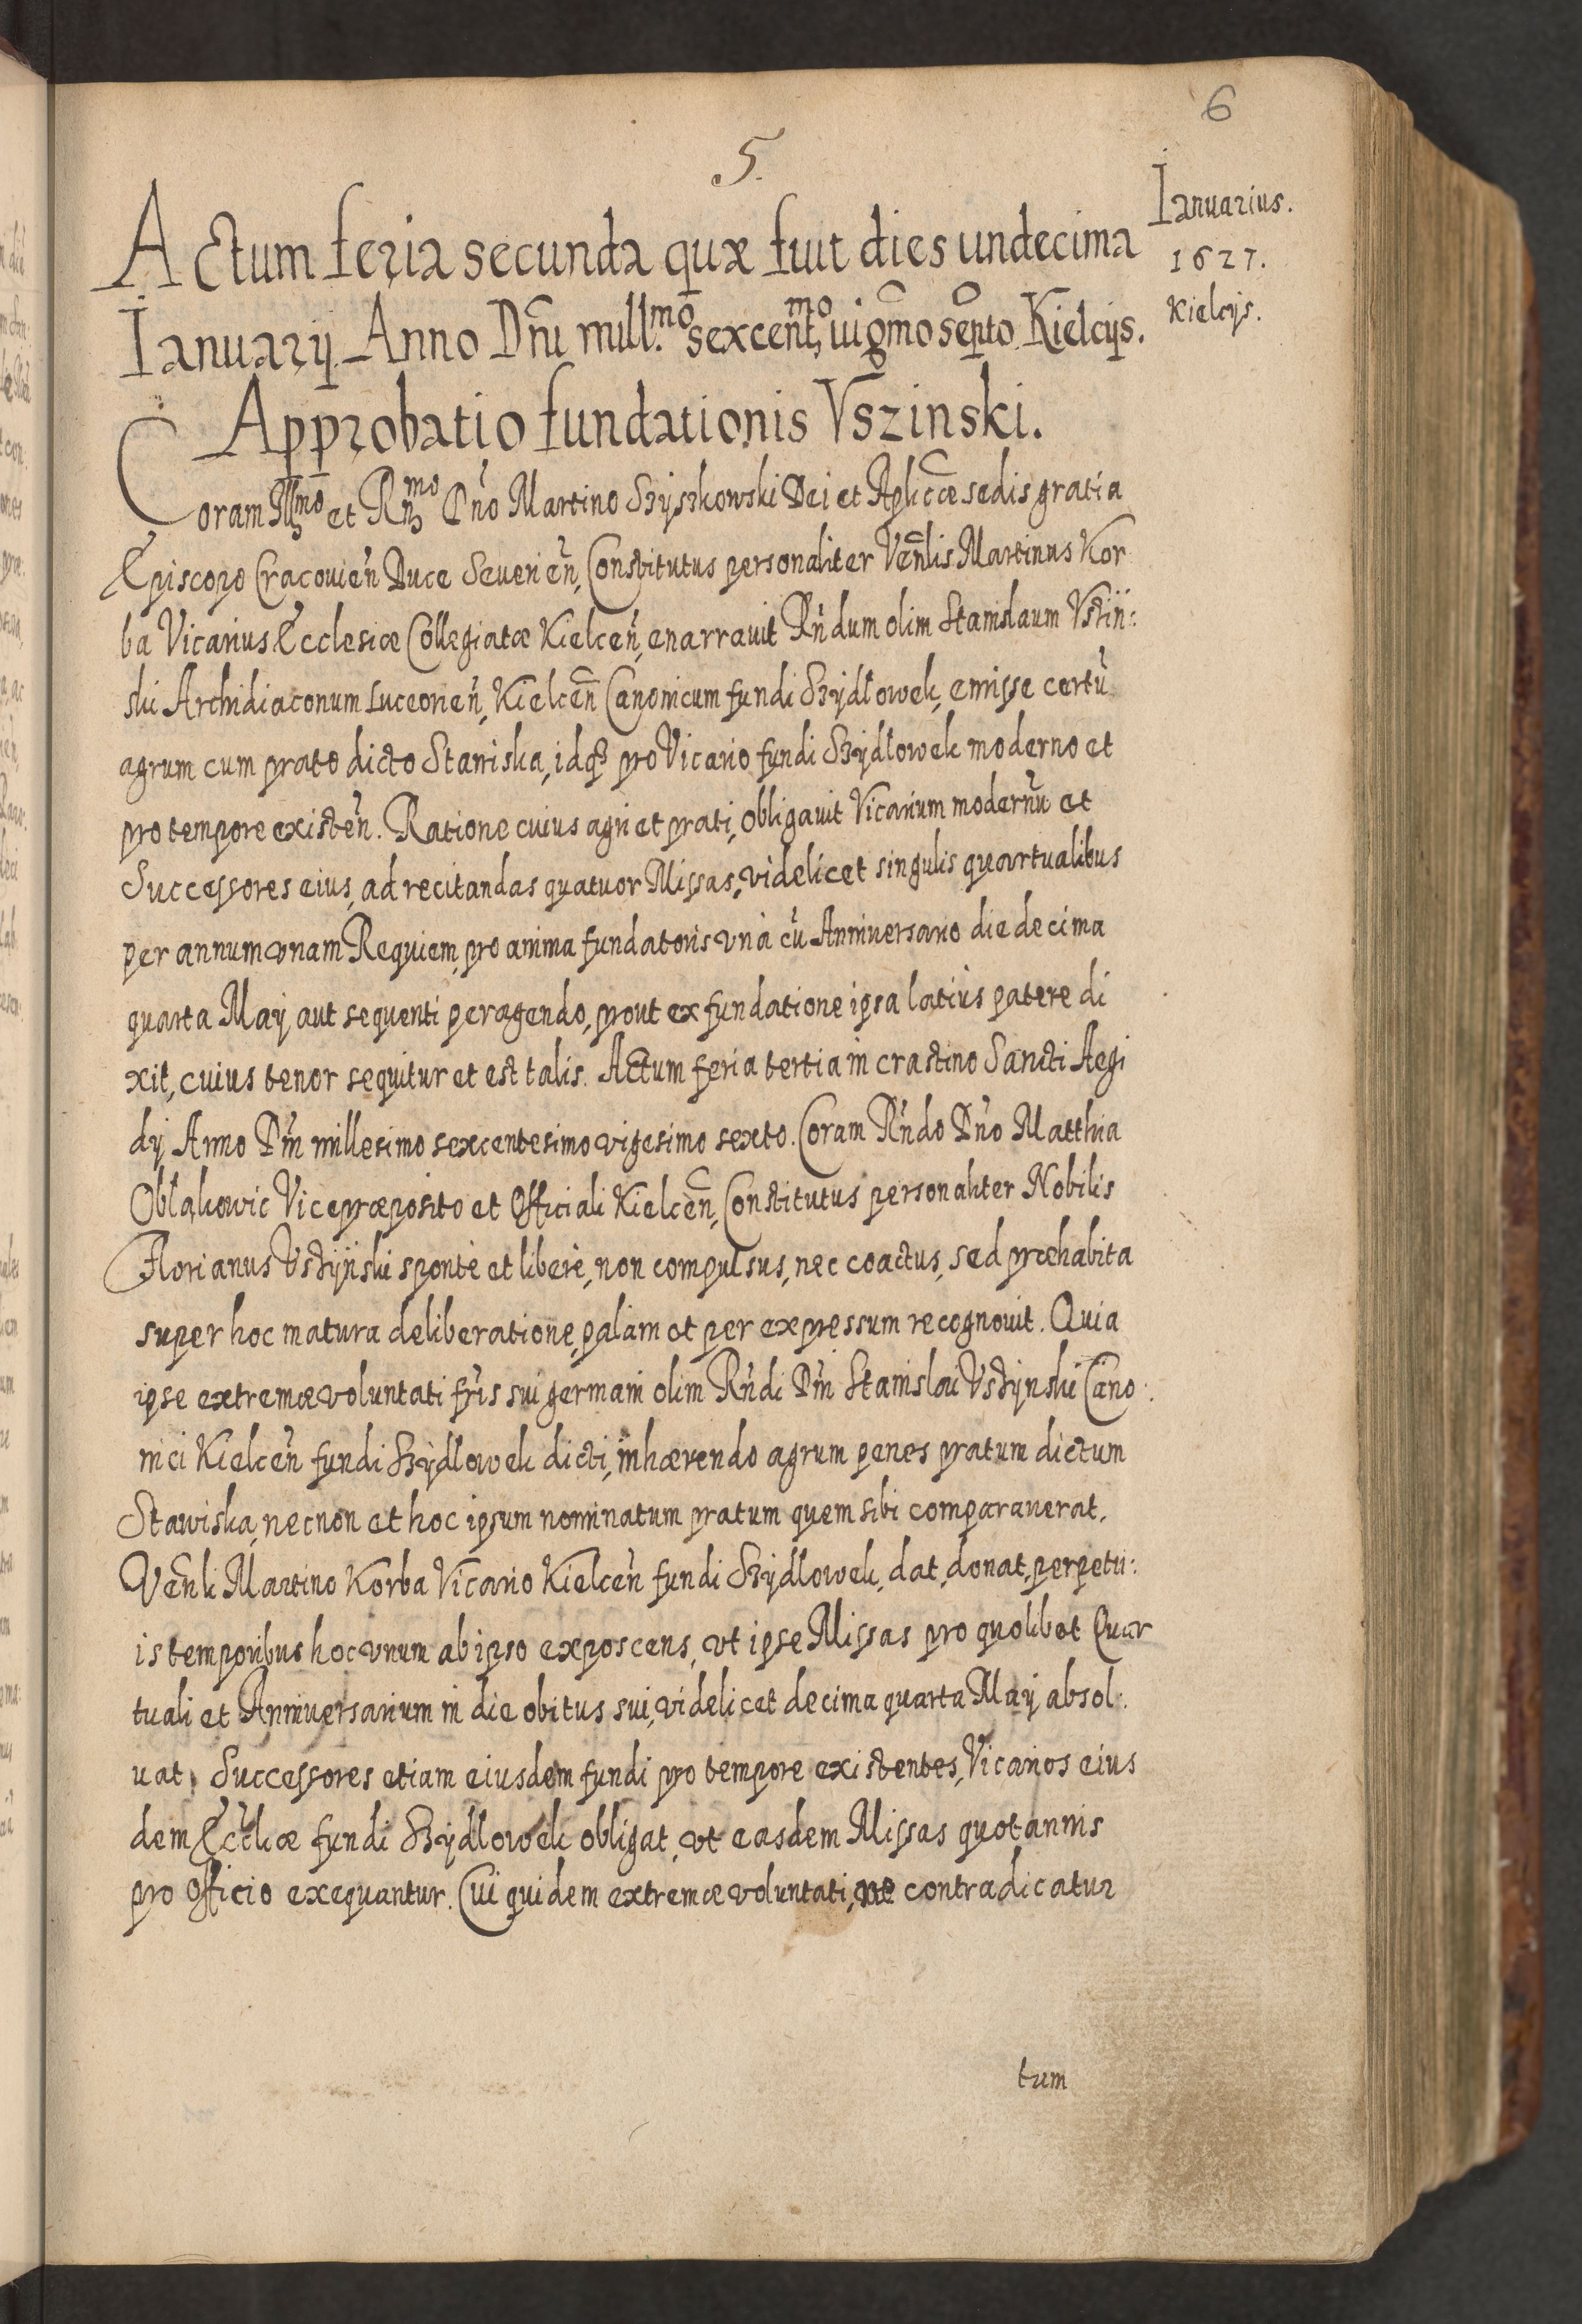 6
5.
Ianuarius.
1627.
Kielcijs.
Actum feria secunda quæ fuit dies undecima
Ianuarij Anno Dñi mill.mo sexcentmo uigmo septo Kielcijs.
Approbatio fundationis Vszinski.
Coram Illmo et Rmo Dño Martino Szyszkowski Dei et Aplicæ sedis gratia
Episcopo Cracouieñ Duce Seuerieñ, Constitutus personaliter Venlis Martinus Kor
ba Vicarius Ecclesiæ Collegiatæ Kielceñ, enarrauit Rñdum olim Stanislaum Vstiń:
ski Archidiaconum Luceorieñ, Kielceñ Canonicum fundi Szydłowek, emisse certũ
agrum cum prato dicto Stawiska, idq3 pro Vicario fundi Szydłowek moderno et
pro tempore existeñ. Ratione cuius agri et prati, obligauit Vicarium modernũ et
Successores eius, ad recitandas quatuor Missas, videlicet singulis quartualibus
per annum vnam Requiem, pro anima fundatoris vnà cũ Anniuersario die decima
quarta Maij aut sequenti peragendo, prout ex fundatione ipsa latiùs patere di
xit, cuius tenor sequitur et est talis. Actum feria tertia in crastino Sancti Aegi
dij Anno Dñi millesimo sexcentesimo vigesimo sexto. Coram Rñdo Dño Matthia
Oblakowic Vicepræposito et Officiali Kielceñ, Constitutus personaliter Nobilis
Florianus Vstijński spontè et liberè, non compulsus, nec coactus, sed præhabita
super hoc matura deliberatione, palàm et per expressum recognouit. Quia
ipse extremæ voluntati fris sui germani olim Rñdi Dñi Stanislai Vstijnski Cano:
nici Kielceñ fundi Szydlowek dicti, inhærendo agrum penes pratum dictum
Stawiska, necnon et hoc ipsum nominatum pratum quem sibi comparauerat,
Venli Martino Korba Vicario Kielceñ fundi Szydlowek, dat, donat, perpetu:
is temporibus hoc vnum ab ipso exposcens, vt ipse Missas pro quolibet Quar
tuali et Anniuersarium in die obitus sui, videlicet decima quarta Maij absol:
uat, Successores etiam eiusdem fundi pro tempore existentes, Vicarios eius
dem Ecclicæ fundi Szydlowek obligat, vt easdem Missas quotannis
pro officio exequantur. Cui quidem extremæ voluntati, ne contradicatur
tum